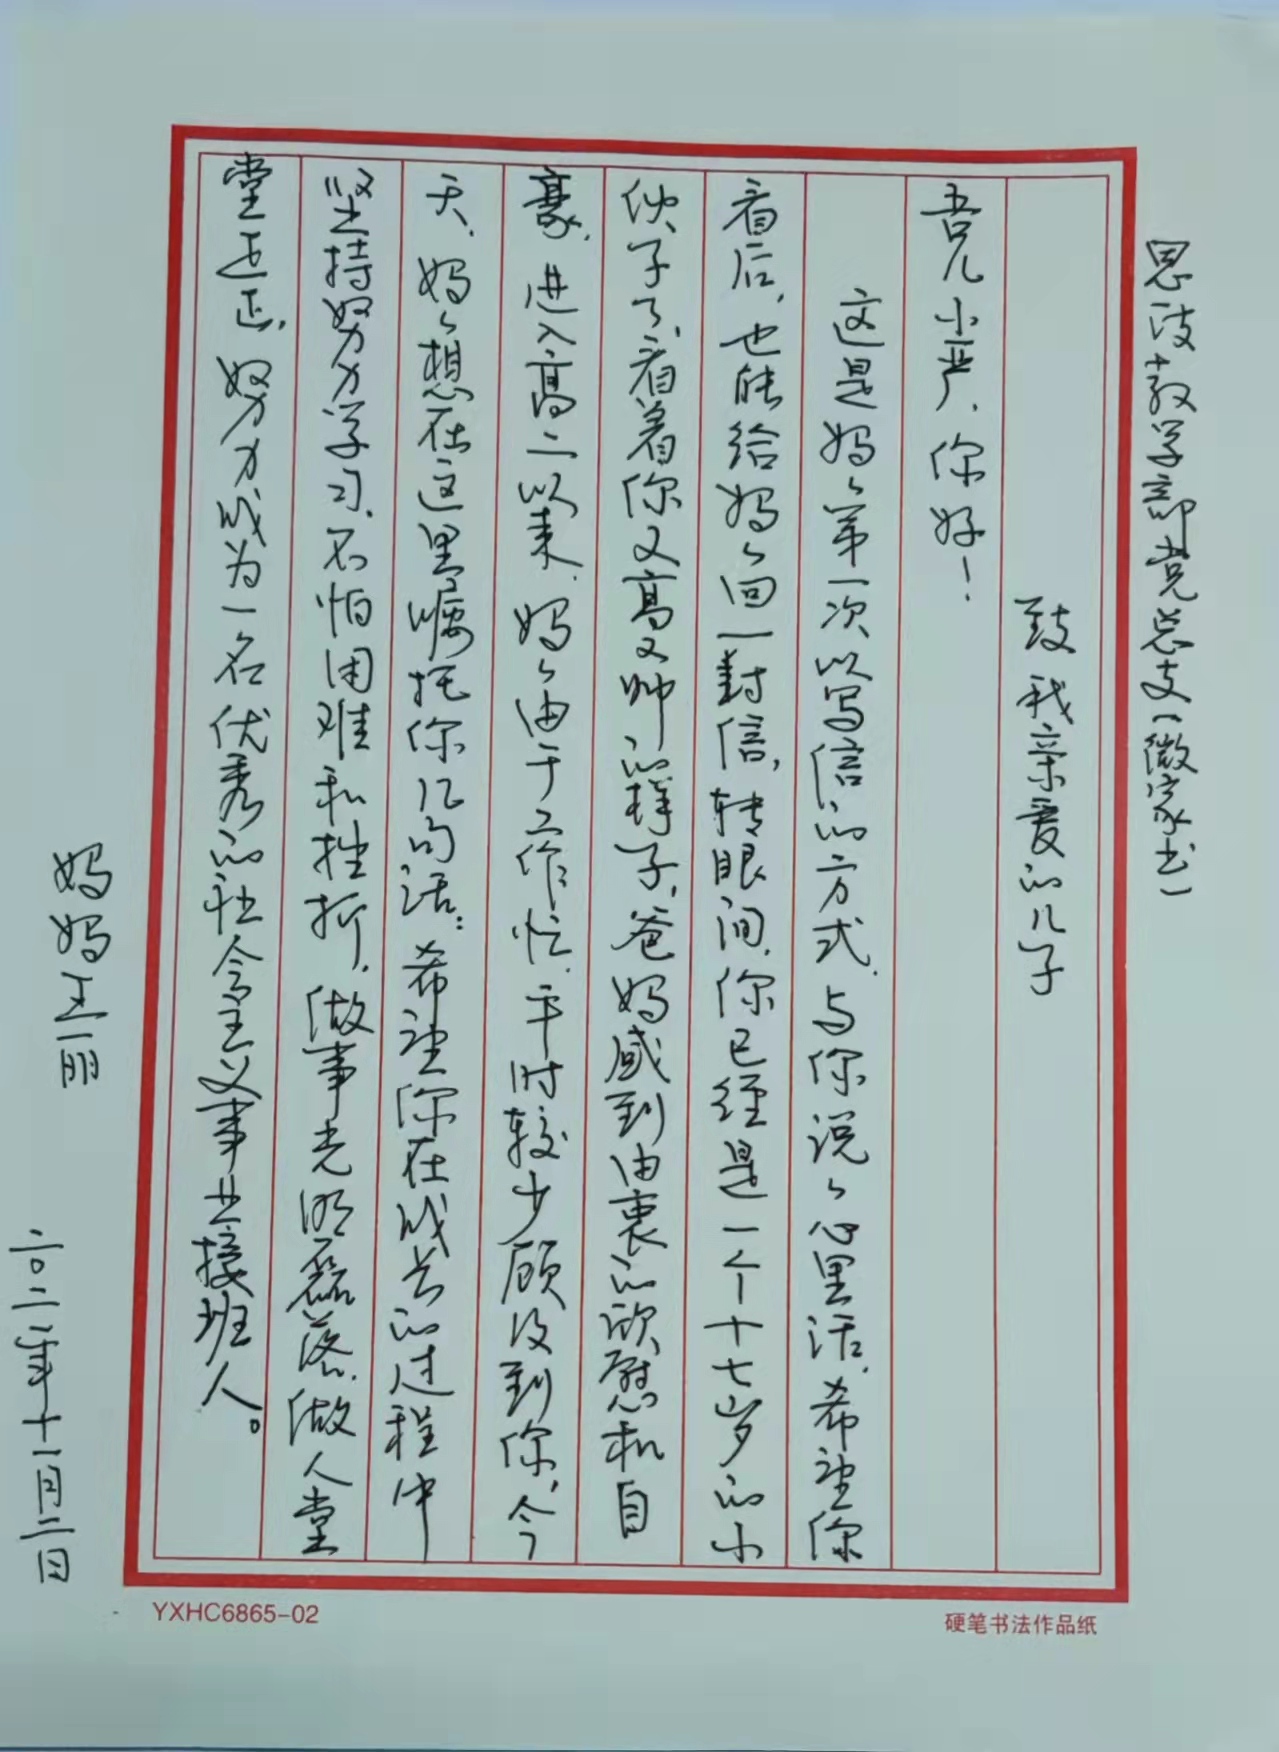 思政教学部党总支（微家书）
致我亲爱的儿子
吾儿小严，你好！
这是妈妈第一次以写信的方式，与你说说心里话，希望你
看后，也能给妈妈回一封信，转眼间，你已经是一个十七岁的小
伙子了，看着你又高又帅的样子，爸妈感到由衷的欣慰和自
豪，进入高二以来，妈妈由于工作忙，平时较少顾及到你，今
天，妈妈想在这里嘱托你几句话：希望你在成长的过程中
坚持努力学习，不怕困难和挫折，做事光明磊落，做人堂
堂正正，努力成为一名优秀的社会主义事业接班人。
妈妈王丽
二〇二一年十一月二日
YXHC6865-02
硬笔书法作品纸